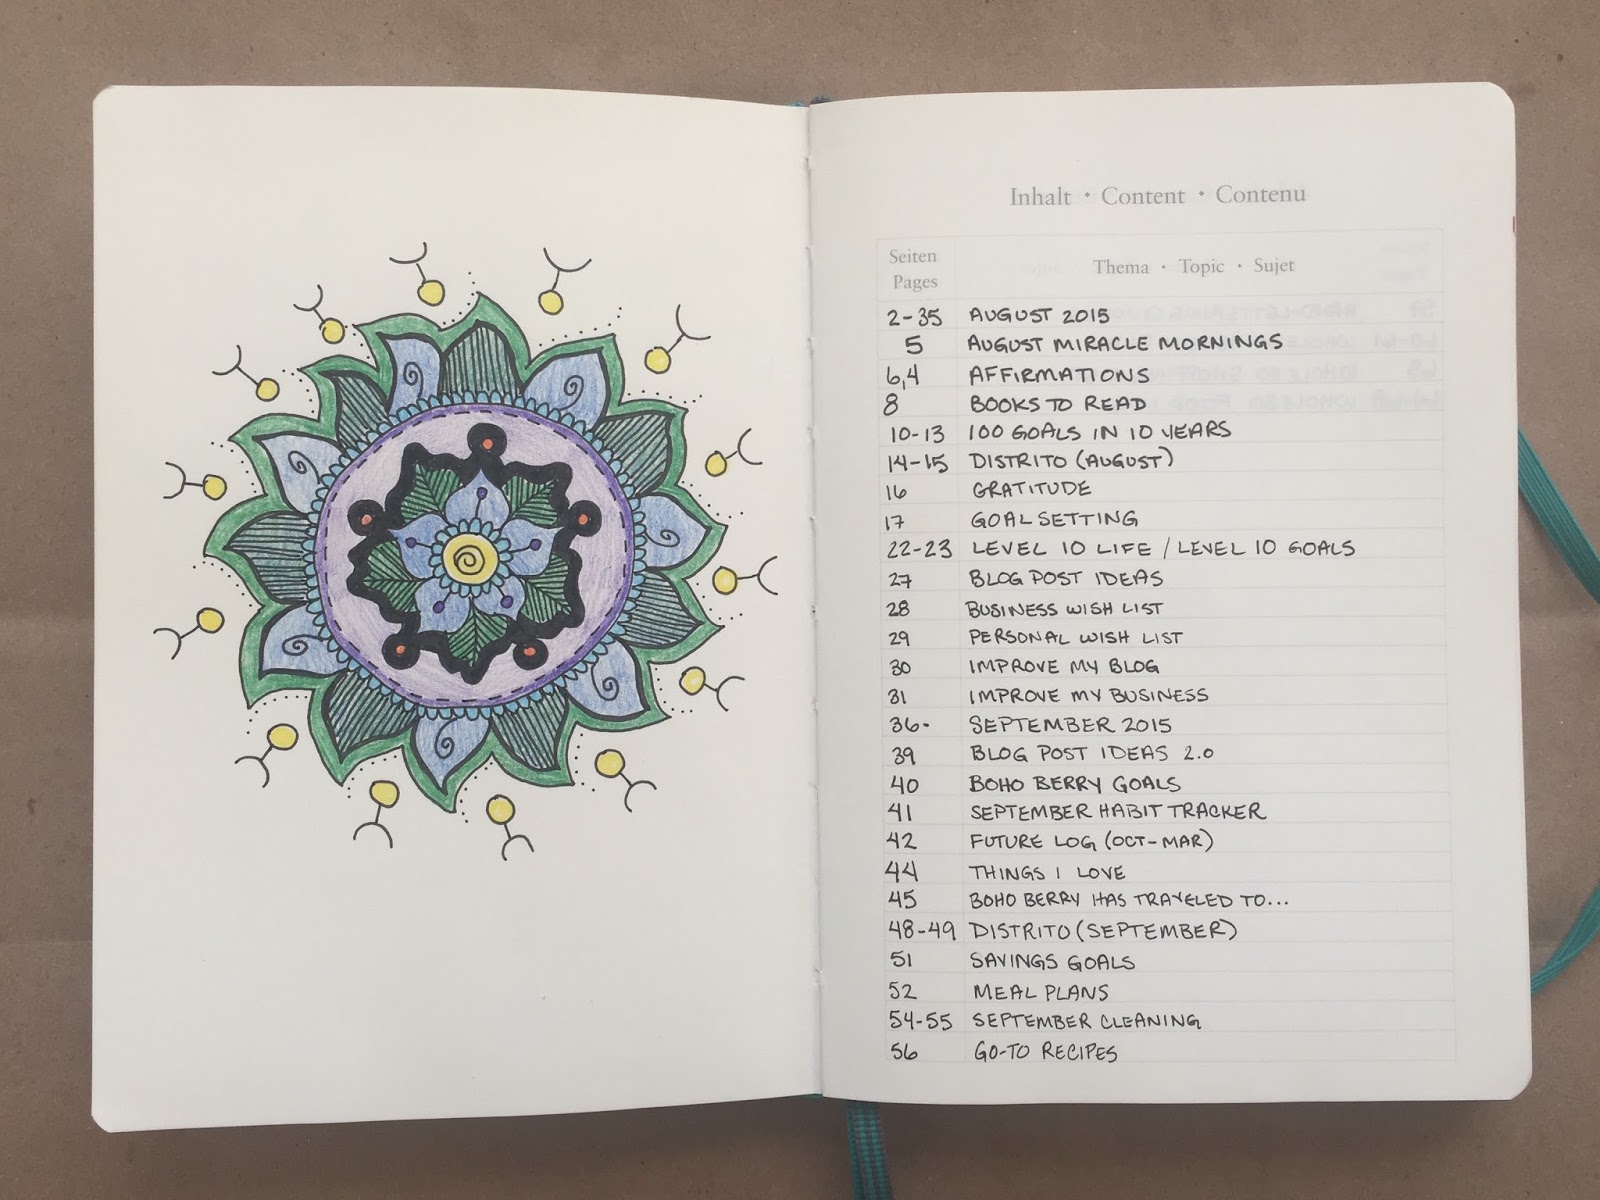 Inhalt • Content • Contenu
Seiten
Pages
Thema • Topic • Sujet
2-35 AUGUST 2015
5 AUGUST MIRACLE MORNINGS
6,4 AFFIRMATIONS
8 BOOKS TO READ
10-13 100 GOALS IN 10 YEARS
14-15 DISTRITO (AUGUST)
16 GRATITUDE
17 GOAL SETTING
22-23 LEVEL 10 LIFE / LEVEL 10 GOALS
27 BLOG POST IDEAS
28 BUSINESS WISH LIST
29 PERSONAL WISH LIST
30 IMPROVE MY BLOG
31 IMPROVE MY BUSINESS
36- SEPTEMBER 2015
39 BLOG POST IDEAS 2.0
40 BOHO BERRY GOALS
41 SEPTEMBER HABIT TRACKER
42 FUTURE LOG (OCT-MAR)
44 THINGS I LOVE
45 BOHO BERRY HAS TRAVELED TO...
48-49 DISTRITO (SEPTEMBER)
51 SAVINGS GOALS
52 MEAL PLANS
54-55 SEPTEMBER CLEANING
56 GO-TO RECIPES